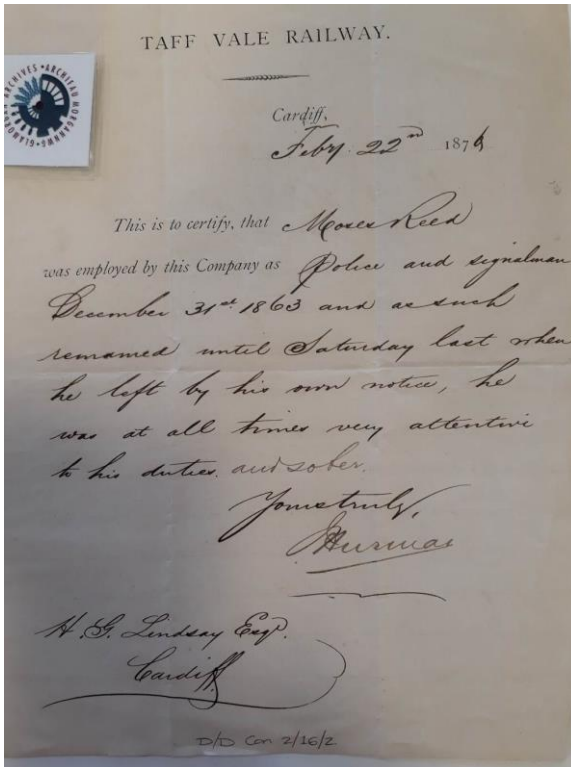 TAFF VALE RAILWAY.
GLAMORGAN ARCHIVES • ARCHIFAU MORGANNWG •
Cardiff,
Feby. 22nd 1876
This is to certify, that Moses Reed
was employed by this Company as Police and signalman
December 31st 1863 and as such
remained until Saturday last when
he left by his own notice, he
was at all times very attentive
to his duties. and sober.
Yours truly,
JHurman
H. G. Lindsay Esqr.
Cardiff
D/D Con 2/16/2